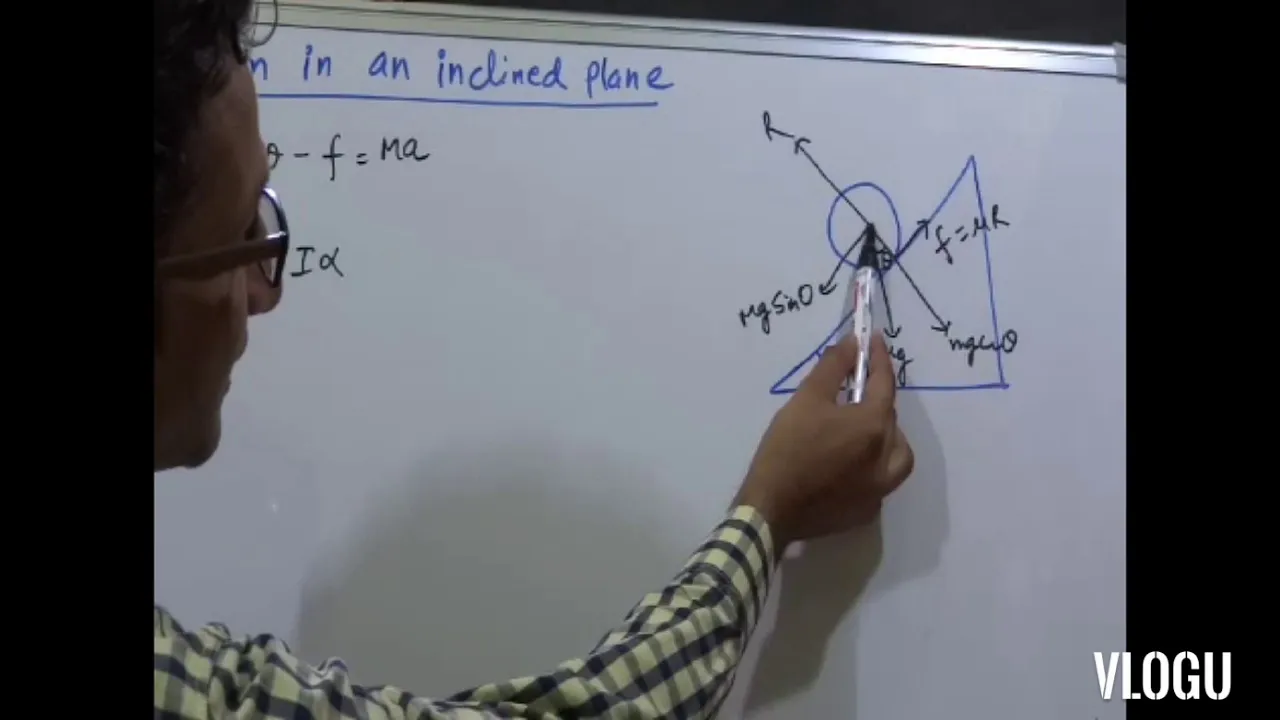 n in an inclined plane
θ - f = Ma
Iα
R
f = μR
θ
MgSinθ
mgcosθ
g
VLOGU